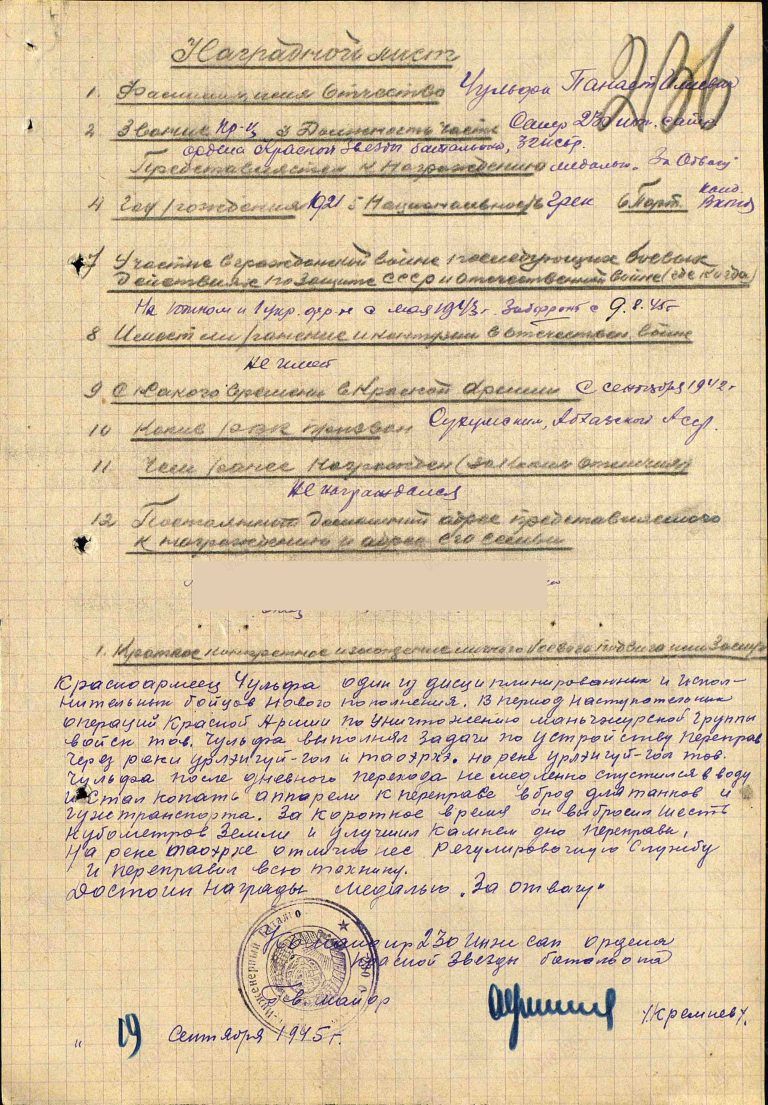 Наградной лист
236
1. Фамилия, имя отчество Чульфа Панает
2 Звание кр-ц 3 Должность часть Сапер 230 инж. сапер.
ордена Красной Звезды батальона, 3 истр.
Представляется к награждению медалью „За Отвагу"
4 Год рождения 1921 5 Национальность Грек 6 Парт. канд. ВКП(б)
7 Участие в гражданской войне последующих боевых
действиях по защите СССР и отечественной войне (где когда)
На Южном и 1 укр. фр-х с мая 1943 г. Забфронт с 9.8.45 г
8 Имеет ли ранение и контузии в отечествен. войне
не имеет
9 С какого времени в Красной Армии с сентября 1942 г
10 Каким РВК призван Сухумским, Абхазской Асср.
11 Чем ранее награжден (за какие отличия)
не награждался
12 Постоянный домашний адрес представляемого
к награждению и адрес его семьи
1. Краткое конкретное изложение личного боевого подвига или заслуг
Красноармеец Чульфа один из дисциплинированных и испол-
нительных бойцов нового пополнения. В период наступательных
операций Красной Армии по уничтожению маньчжурской группы
войск тов. Чульфа выполнял задачи по устройству переправ
через реки урлэнгуй-гол и таоэрхэ. на реке урлэнгуй-гол тов.
Чульфа после дневного перехода немедленно спустился в воду
и стал копать аппарели к переправе вброд для танков и
гужтранспорта. За короткое время он выбросил шесть
кубометров земли и улучшил камнем дно переправы,
на реке таоэрхе отлично нес регулировочную службу
и переправил всю технику.
Достоин награды медалью „За отвагу"
Командир 230 инж сап ордена
Красной Звезды батальона
гв. майор /Кремнев/.
„ 19 сентября 1945 г.